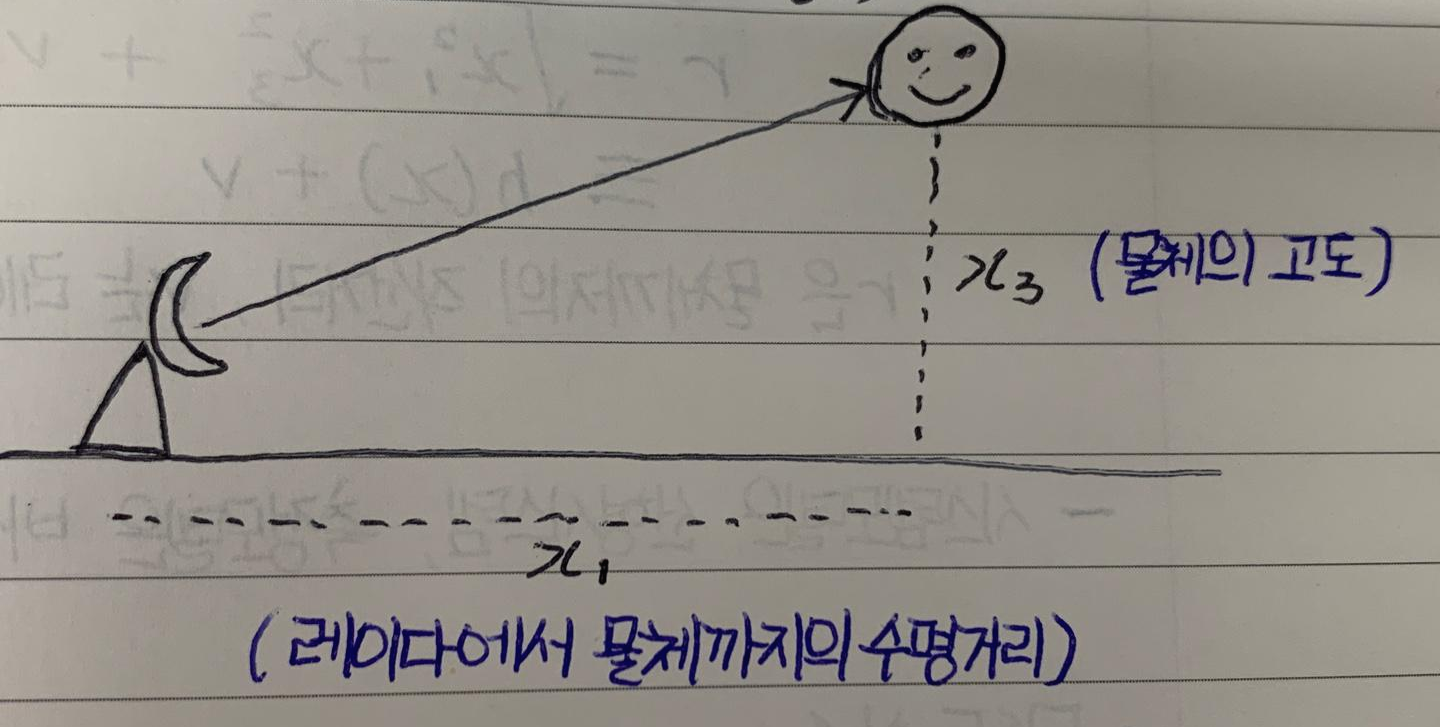 x₃ (물체의 고도)
x₁
(레이다에서 물체까지의 수명거리)